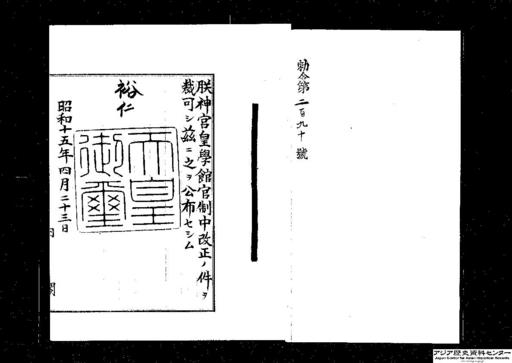 勅令第二百九十號
朕神宮皇學館官制中改正ノ件ヲ
裁可シ茲ニ之ヲ公布セシム
裕仁
天皇御璽
昭和十五年四月二十三日
内閣
アジア歴史資料センター
Japan Center for Asian Historical Records